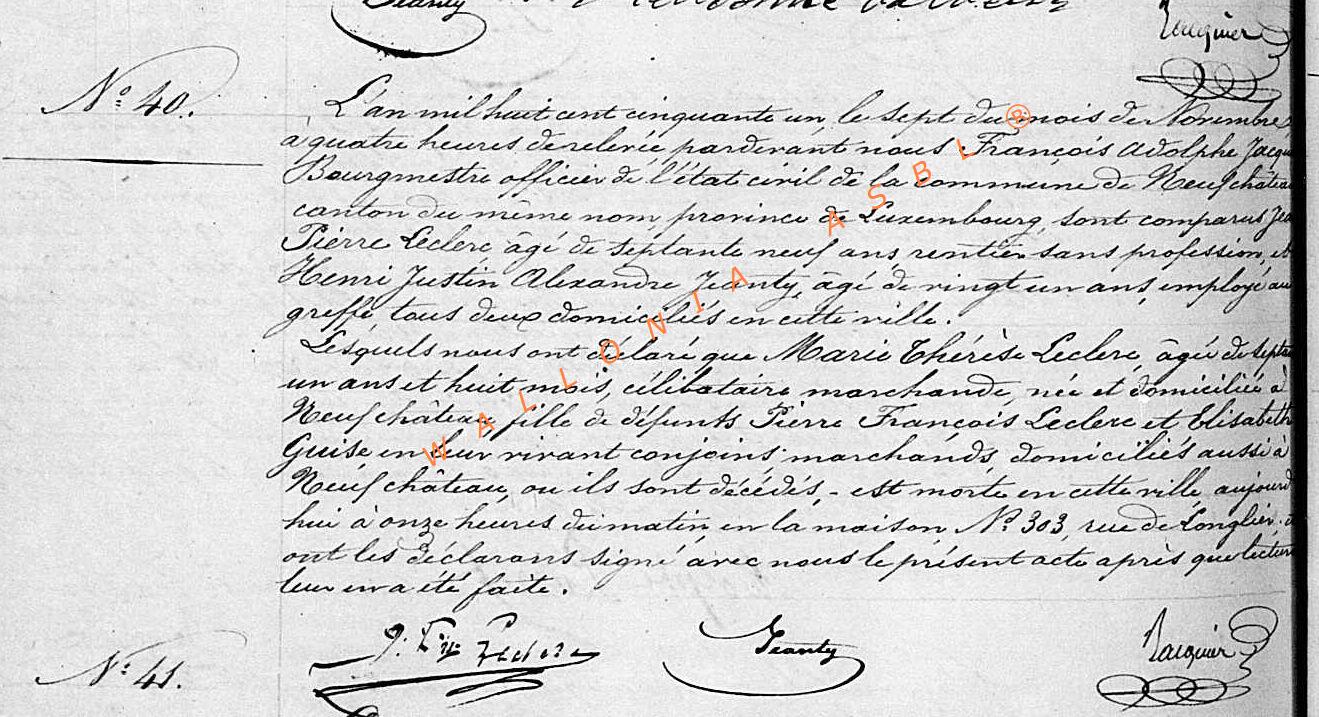 Jeanty
Jacquier
N° 40.
L'an mil huit cent cinquante un, le sept du mois de Novembre
à quatre heures de relevée pardevant nous François Adolphe Jacqui
Bourgmestre officier de l'état civil de la commune de Neufchâteau
canton du même nom, province de Luxembourg, sont comparus Jea
Pierre Leclerc, âgé de septante neuf ans, rentier sans profession, et
Henri Justin Alexandre Jeanty, âgé de vingt un ans, employé au
greffe, tous deux domiciliés en cette ville.
Lesquels nous ont déclaré que Marie Thérèse Leclerc, âgée de septa
un ans et huit mois, célibataire marchande, née et domiciliée à
Neufchâteau, fille de défunts Pierre François Leclerc et Elisabeth
Guise en leur vivant conjoins marchands, domiciliés aussi à
Neufchâteau, ou ils sont décédés, - est morte en cette ville, aujourd
hui à onze heures du matin, en la maison N° 303, rue de Longlier. et
ont les déclarans signé avec nous le présent acte après que lecture
leur en a été faite.
WALLONIA ASBL ®
Jeanty
Jacquier
N° 41.